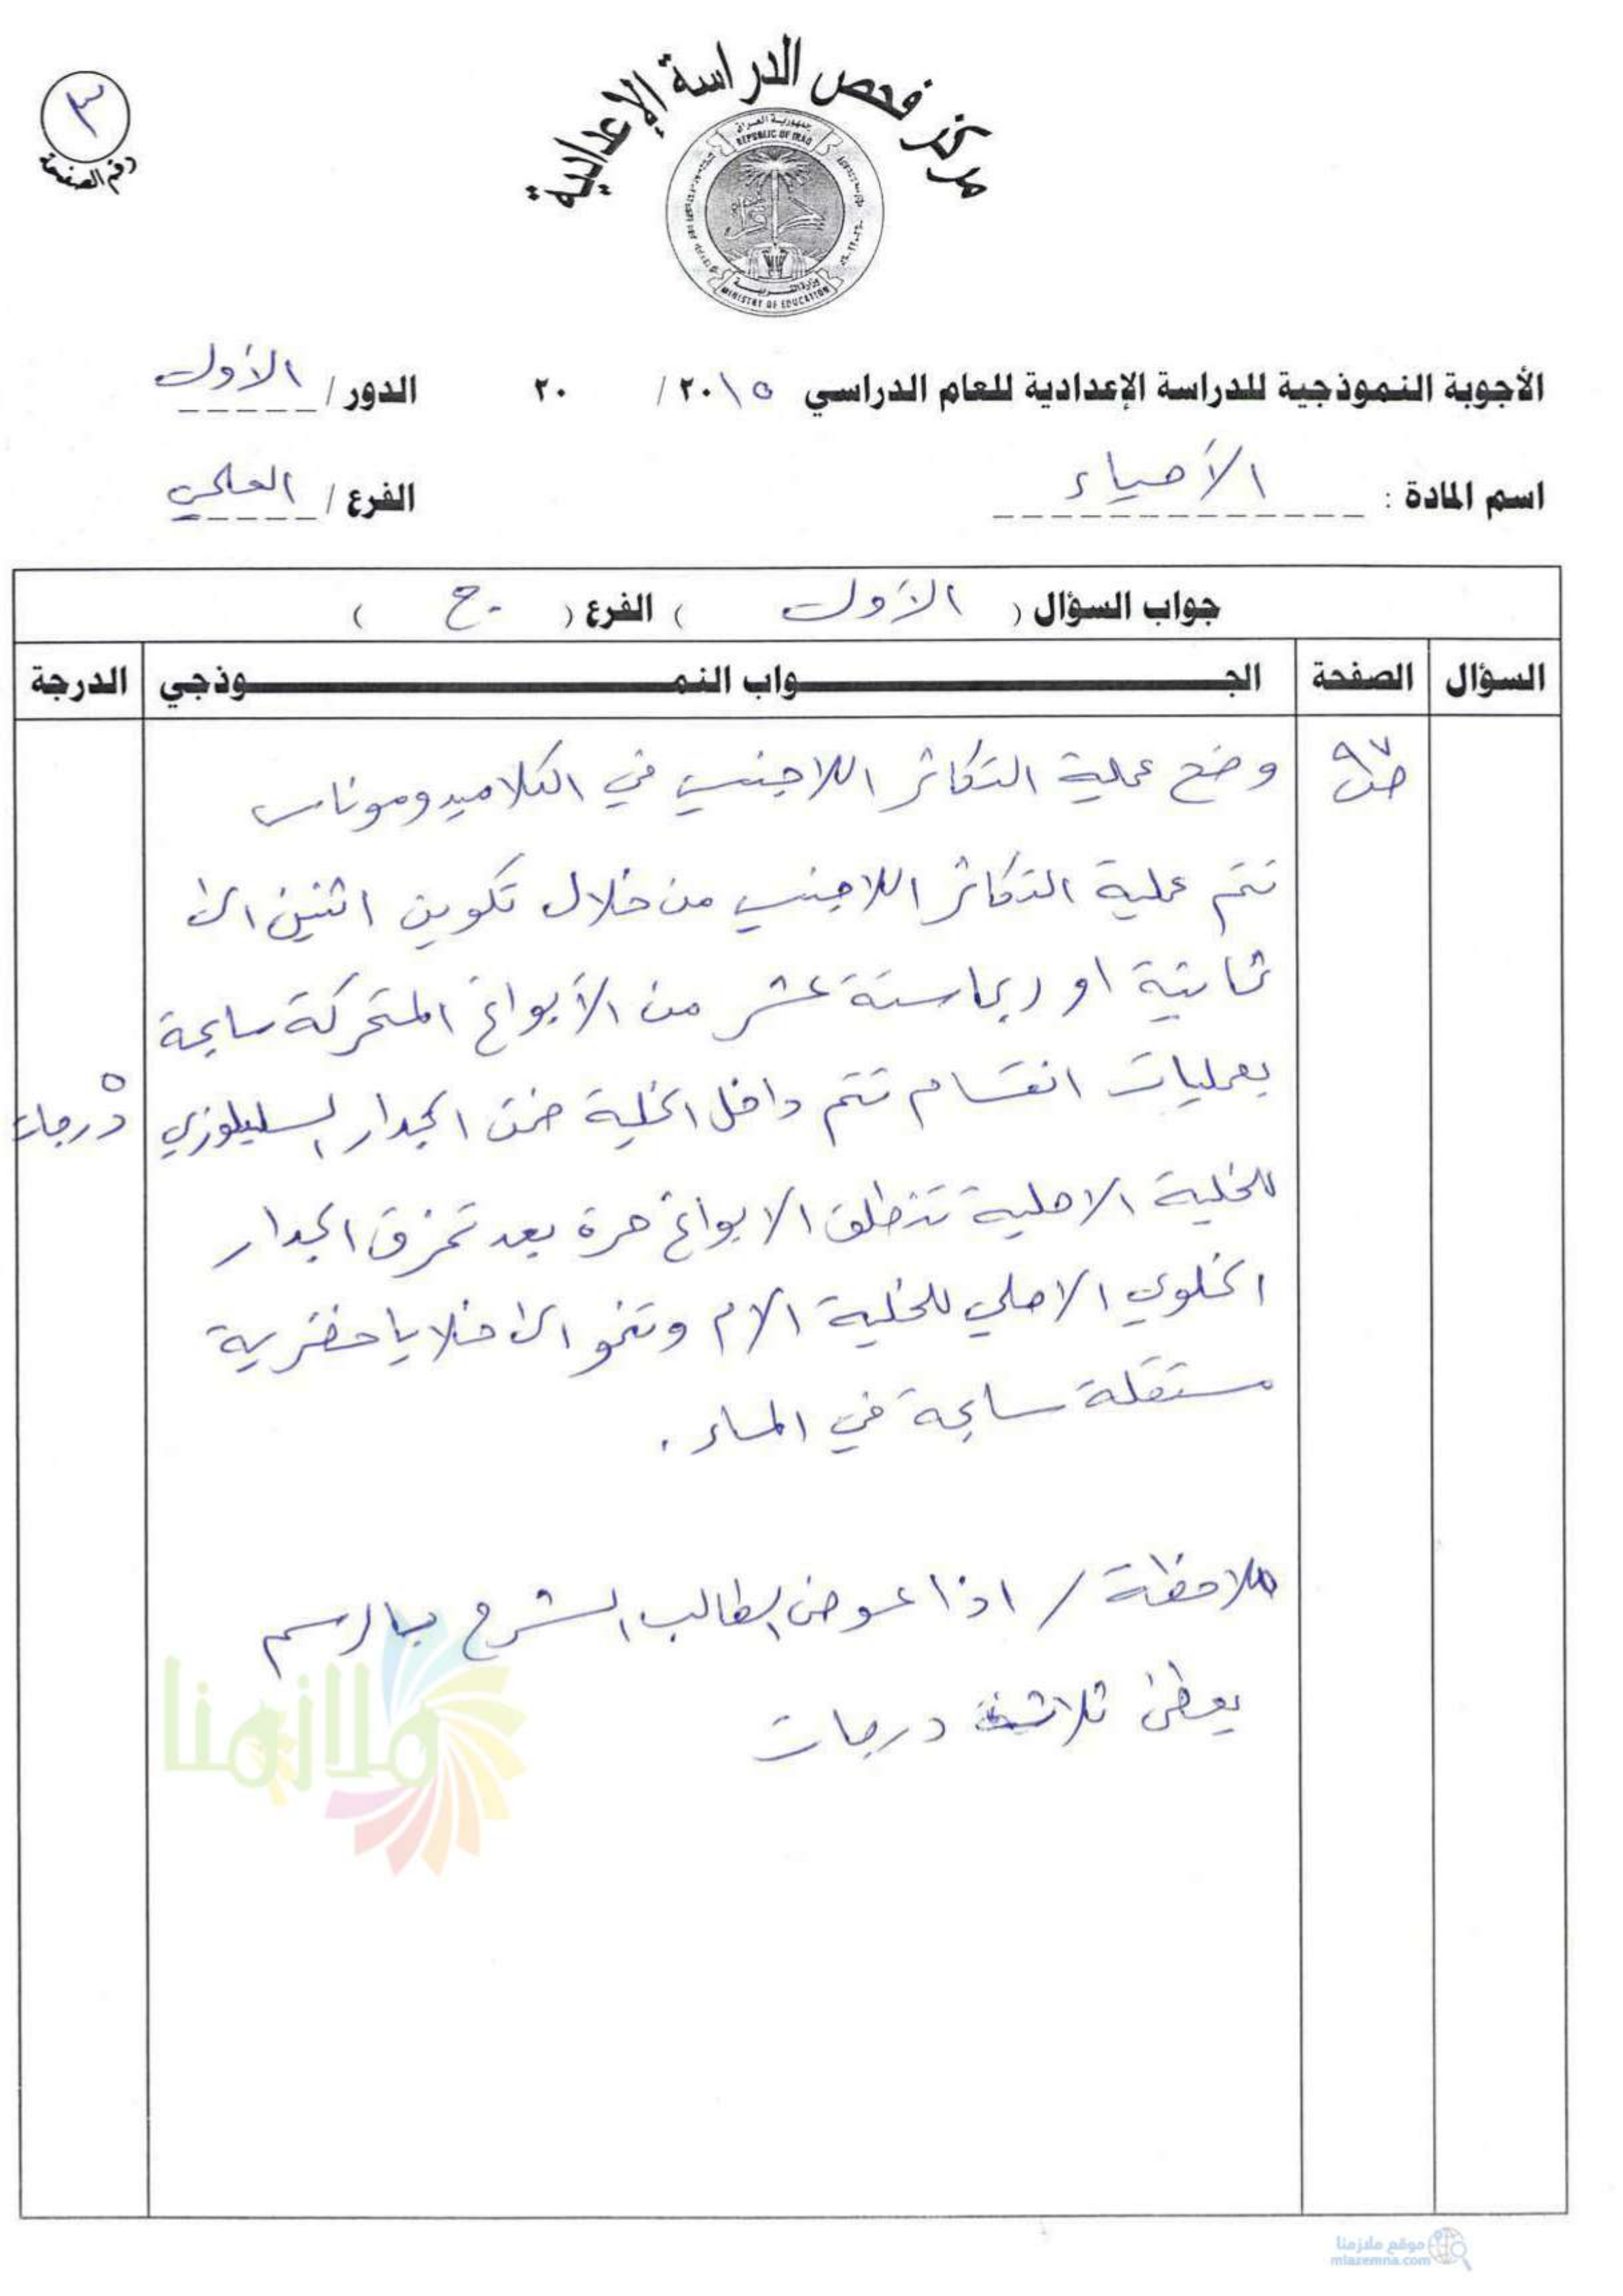 مركز فحص الدراسة الإعدادية
جمهورية العراق
REPUBLIC OF IRAQ
وزارة التربية
MINISTRY OF EDUCATION
٣
رقم الصفحة
الأجوبة النموذجية للدراسة الإعدادية للعام الدراسي ٢٠١٥ / ٢٠ الدور / الأول
اسم المادة : الأحياء الفرع / العلمي
جواب السؤال ( الأول ) الفرع ( ح )
السؤال الصفحة الجـــواب النمـــوذجي الدرجة
ص ٩٧
وضح عملية التكاثر اللاجنسي في الكلاميدوموناس
تتم عملية التكاثر اللاجنسي من خلال تكوين اثنين الى
ثمانية او ربما ستة عشر من الأبواغ المتحركة سابحة
بعمليات انقسام تتم داخل الخلية ضمن الجدار السليلوزي
٥ درجات
للخلية الاصلية تنطلق الابواغ حرة بعد تمزق الجدار
الخلوي الاصلي للخلية الام وتنمو الى خلايا خضرية
مستقلة سابحة في الماء .
ملاحظة / اذا عوض الطالب الشرح بالرسم
يعطى ثلاثة درجات
ملازمنا
موقع ملازمنا
mlazemna.com